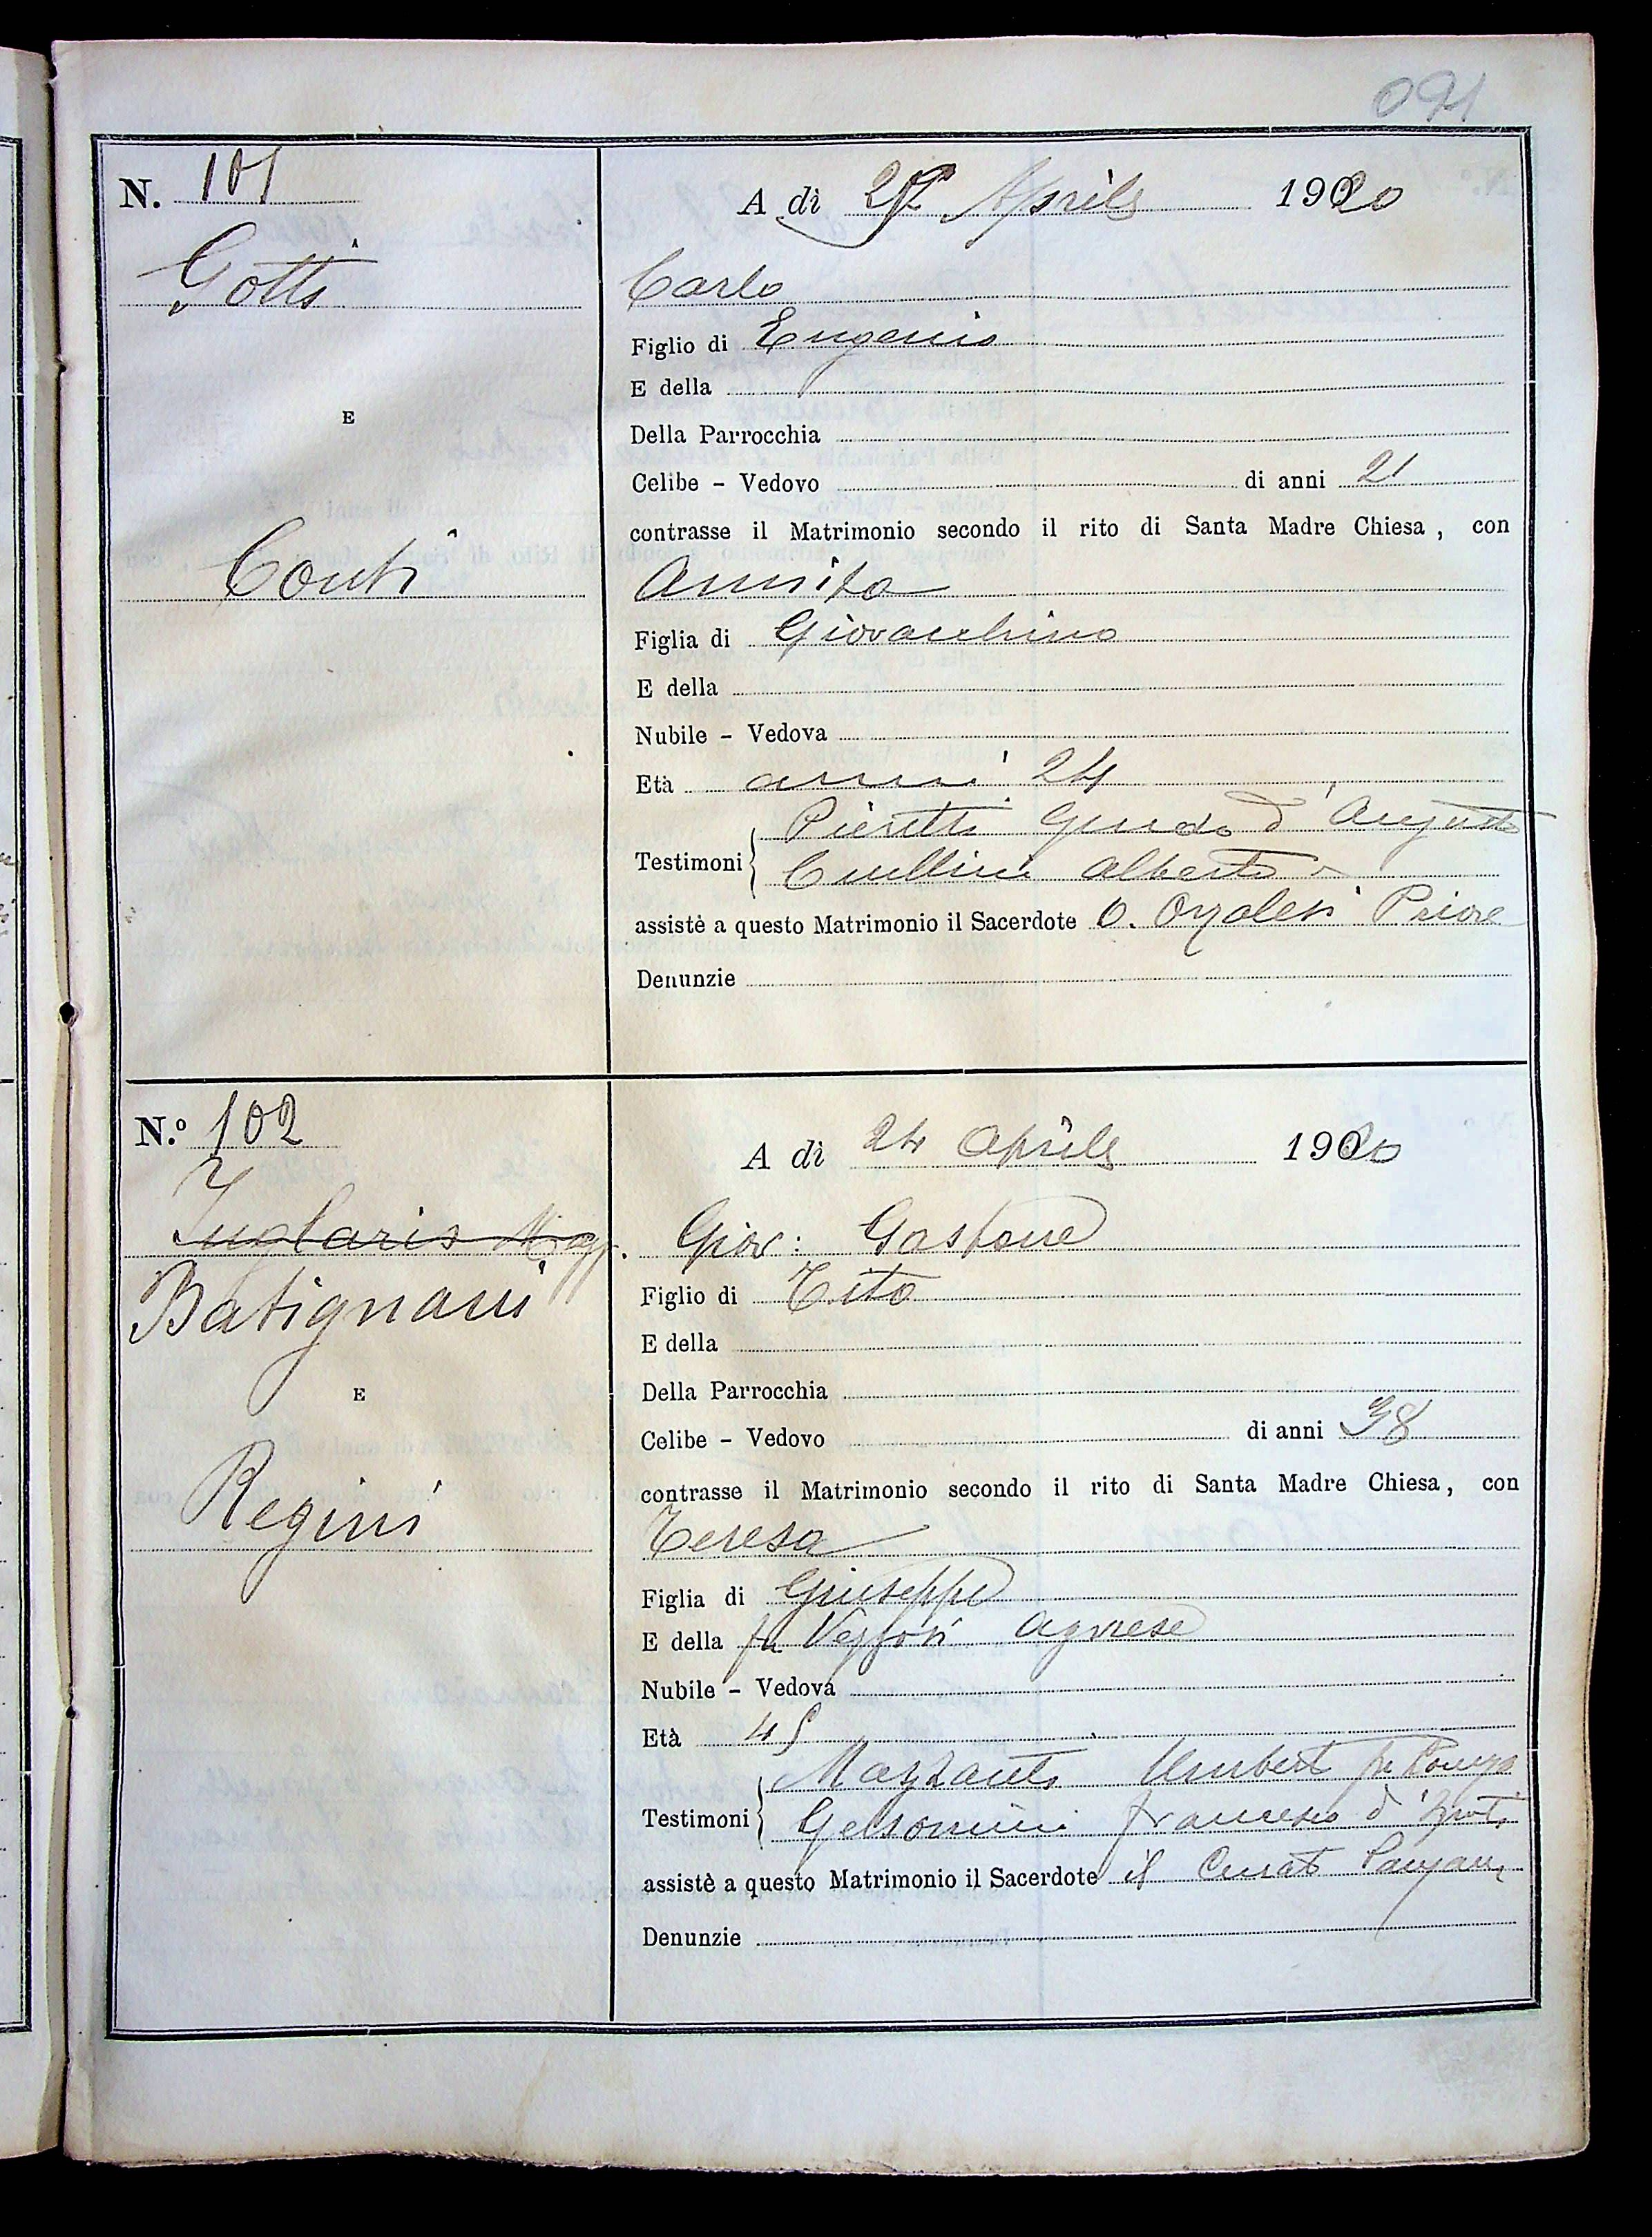 091
N. 101
A dì Aprile 1920
Gotti
Carlo
Figlio di Eugenio
E della
E
Della Parrocchia
Celibe - Vedovo di anni 21
contrasse il Matrimonio secondo il rito di Santa Madre Chiesa, con
Conti
Annita
Figlia di Giovacchino
E della
Nubile - Vedova
Età anni 24
Pieretti Guido d'Augusto
Testimoni
Cullini Alberto
assistè a questo Matrimonio il Sacerdote O. Orzalesi Priore
Denunzie
N.º 102
A dì 24 Aprile 1920
Juglaris
Giov: Gastone
Batignani
Figlio di Tito
E della
E
Della Parrocchia
Celibe - Vedovo di anni 38
contrasse il Matrimonio secondo il rito di Santa Madre Chiesa, con
Regini
Teresa
Figlia di Giuseppe
E della fu Agnese
Nubile - Vedova
Età 45
Mazzanti Umberto fu
Testimoni
Gelsomini Francesco
assistè a questo Matrimonio il Sacerdote il Curato
Denunzie